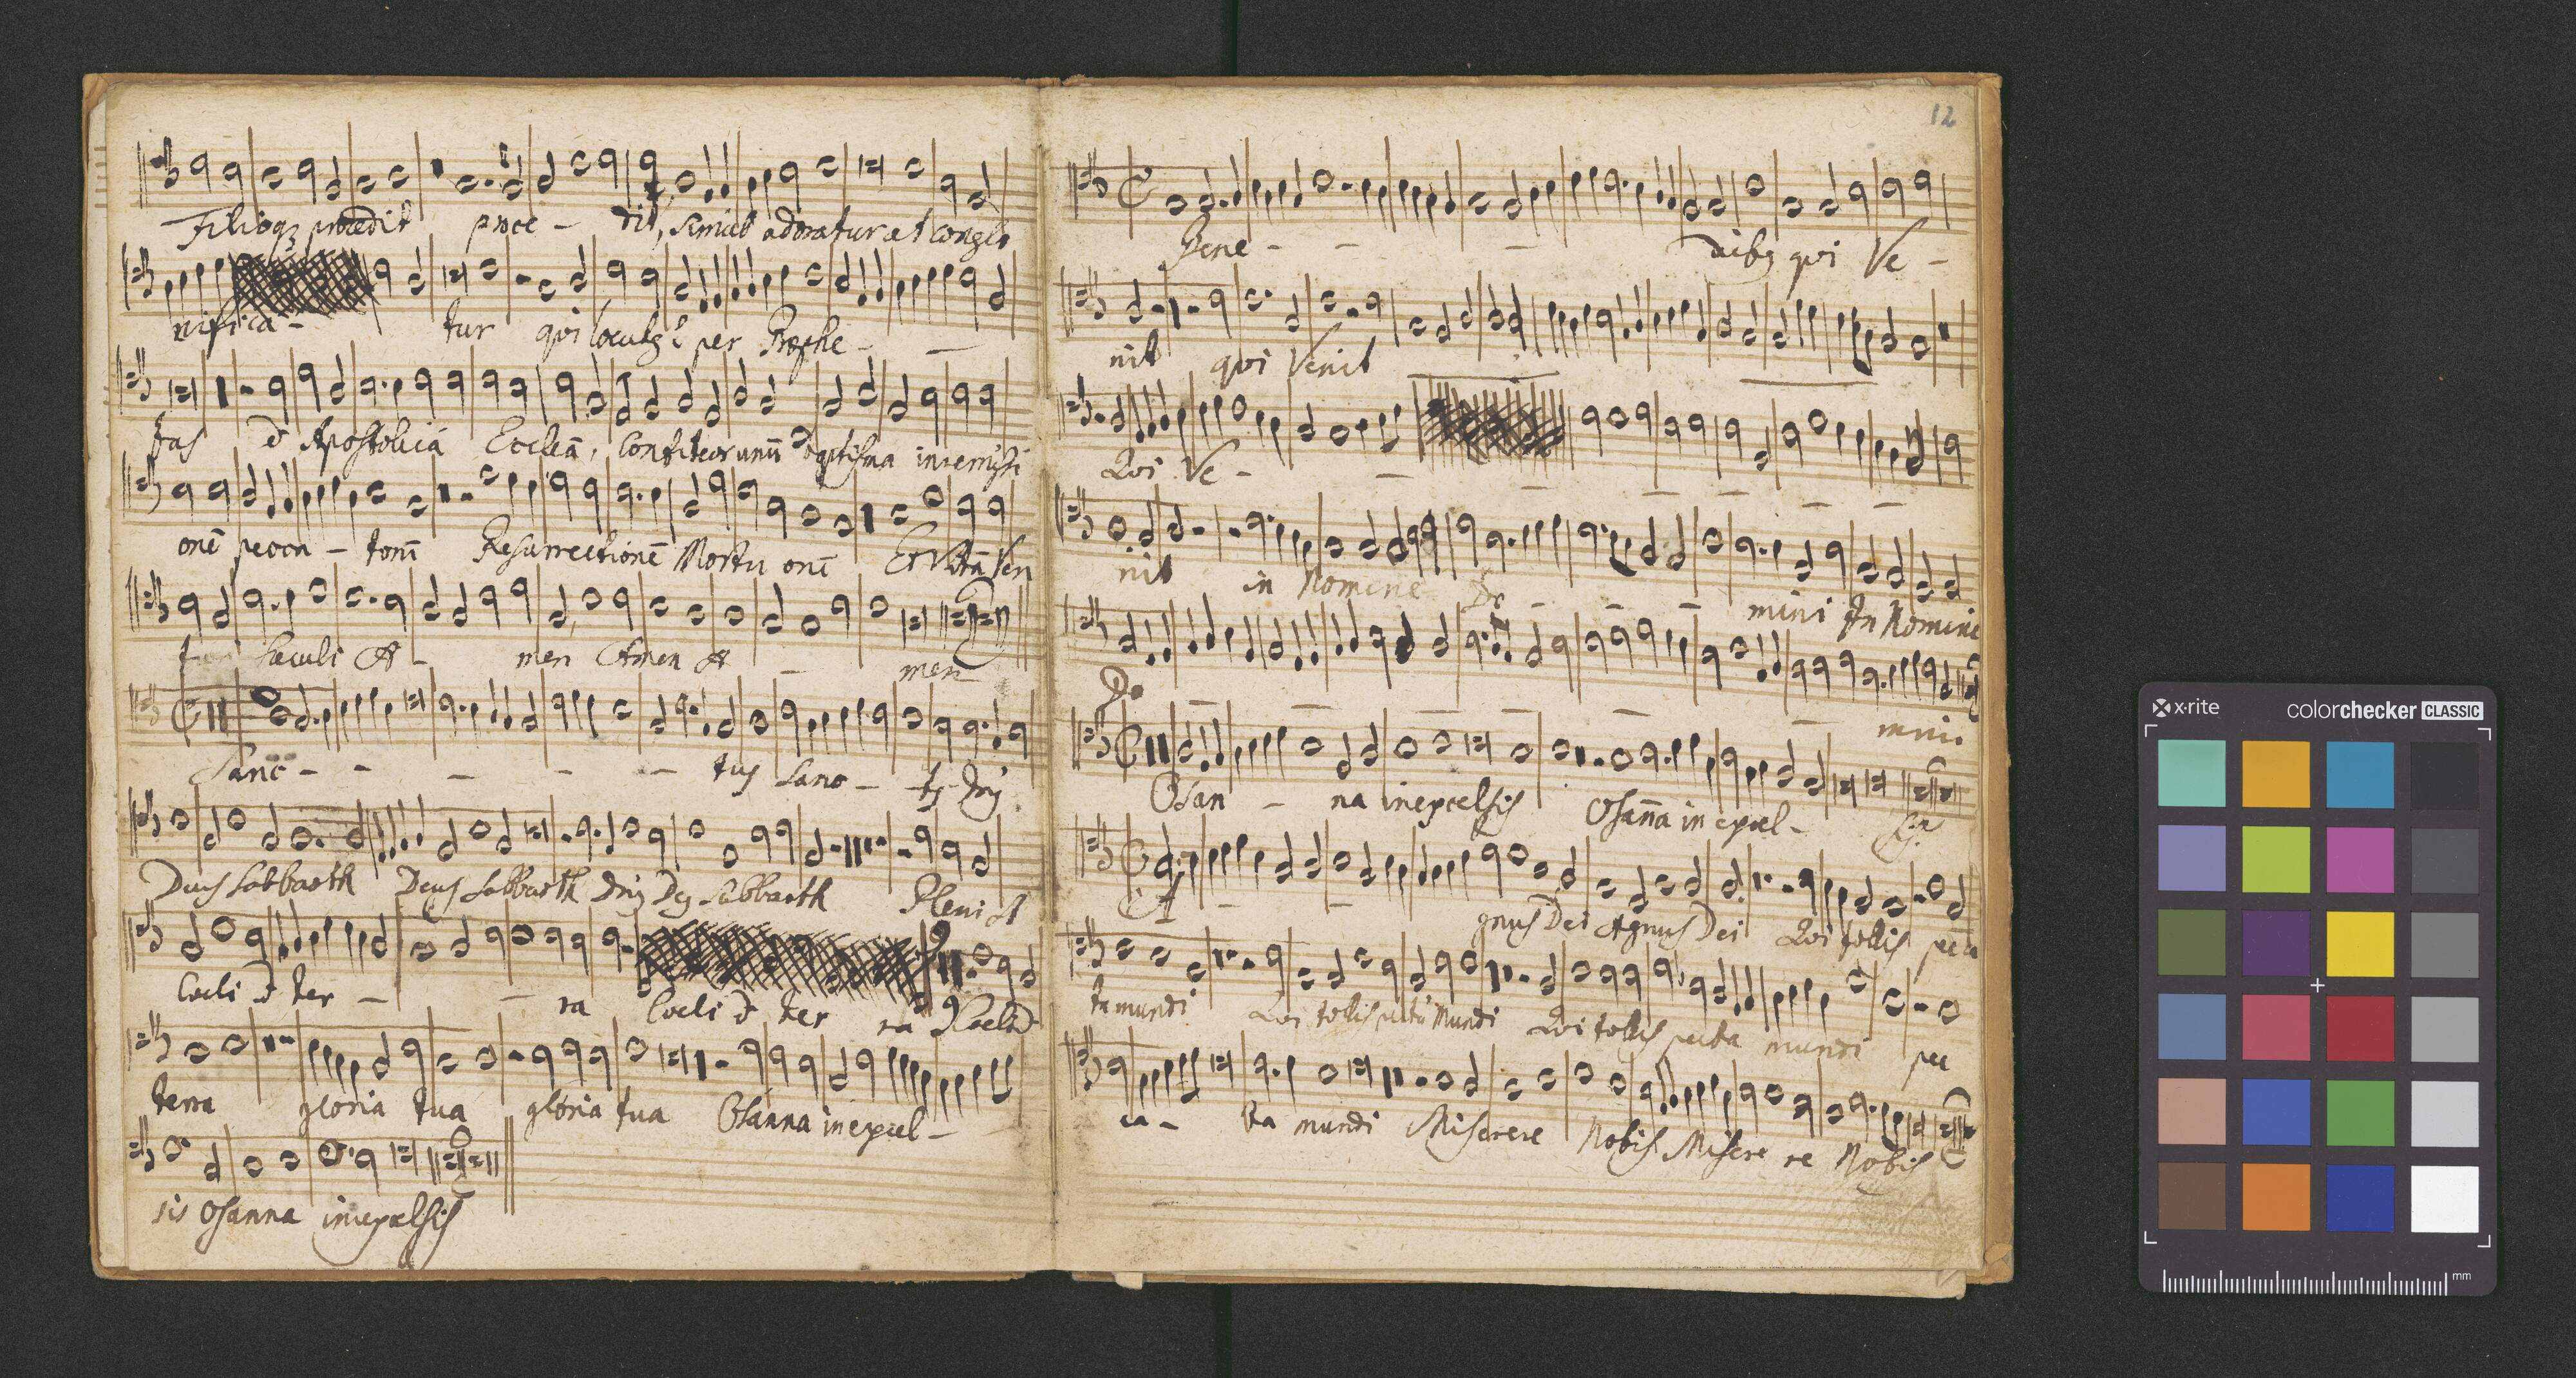 Filioq₃ procedit proce - dit, simul adoratur et conglo
nifica - tur qui locutq ẽ per Prophe -
tas & Apostolicã Eccleã, Confiteor unũ baptisma in remissi
onẽ pecca - torũ Resurrectionẽ Mortu orũ Et Vitã Ven
sæculi A - men Amen A - men
Sanc - - - - - tus Sanc - tq Dnq
Deus Sabbaoth Deus Sabbaoth Dnq Deq Sabbaoth Pleni st
Coeli & ter - - ra Coeli & ter ra Coeli &
terra gloria tua gloria tua Osanna in excel -
sis Osanna in excelsis
12
Bene - - - dictq qui Ve -
nit qui Venit
Qui Ve - - - - - - -
nit in Nomine Do - - - mini In Nomine
Do - - - - - mini
Osan - na in excelsis Osañna in excel - sis
A - - gnus Dei Agnus Dei Qui tollis pecca
ta mundi Qui tollis pectã Mundi Qui tollis peccta mundi pec
ca - ta mundi Miserere Nobis Misere re Nobis
x·rite
colorchecker CLASSIC
mm